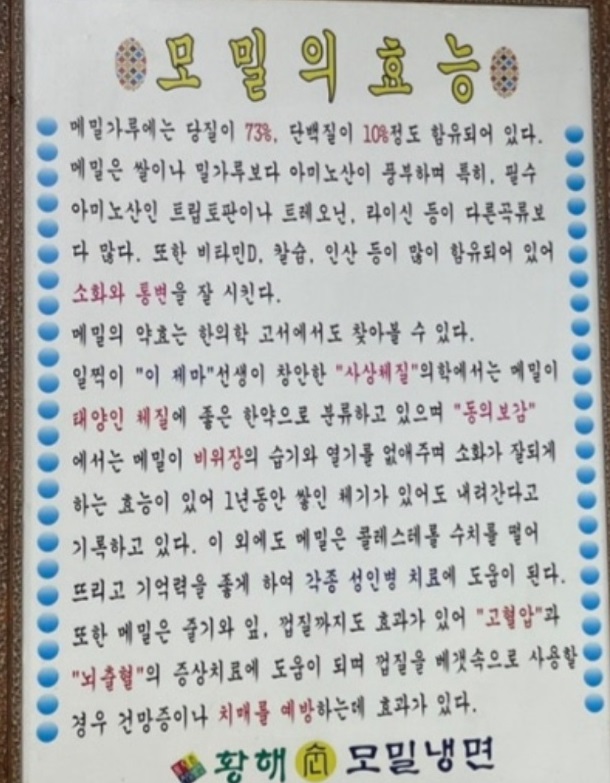 모밀의효능
메밀가루에는 당질이 73%, 단백질이 10%정도 함유되어 있다.
메밀은 쌀이나 밀가루보다 아미노산이 풍부하며 특히, 필수
아미노산인 트립토판이나 트레오닌, 라이신 등이 다른곡류보
다 많다. 또한 비타민D, 칼슘, 인산 등이 많이 함유되어 있어
소화와 통변을 잘 시킨다.
메밀의 약효는 한의학 고서에서도 찾아볼 수 있다.
일찍이 "이 제마"선생이 창안한 "사상체질"의학에서는 메밀이
태양인 체질에 좋은 한약으로 분류하고 있으며 "동의보감"
에서는 메밀이 비위장의 습기와 열기를 없애주며 소화가 잘되게
하는 효능이 있어 1년동안 쌓인 체기가 있어도 내려간다고
기록하고 있다. 이 외에도 메밀은 콜레스테롤 수치를 떨어
뜨리고 기억력을 좋게 하여 각종 성인병 치료에 도움이 된다.
또한 메밀은 줄기와 잎, 껍질까지도 효과가 있어 "고혈압"과
"뇌출혈"의 증상치료에 도움이 되며 껍질을 베갯속으로 사용할
경우 건망증이나 치매를 예방하는데 효과가 있다.
황해 모밀냉면